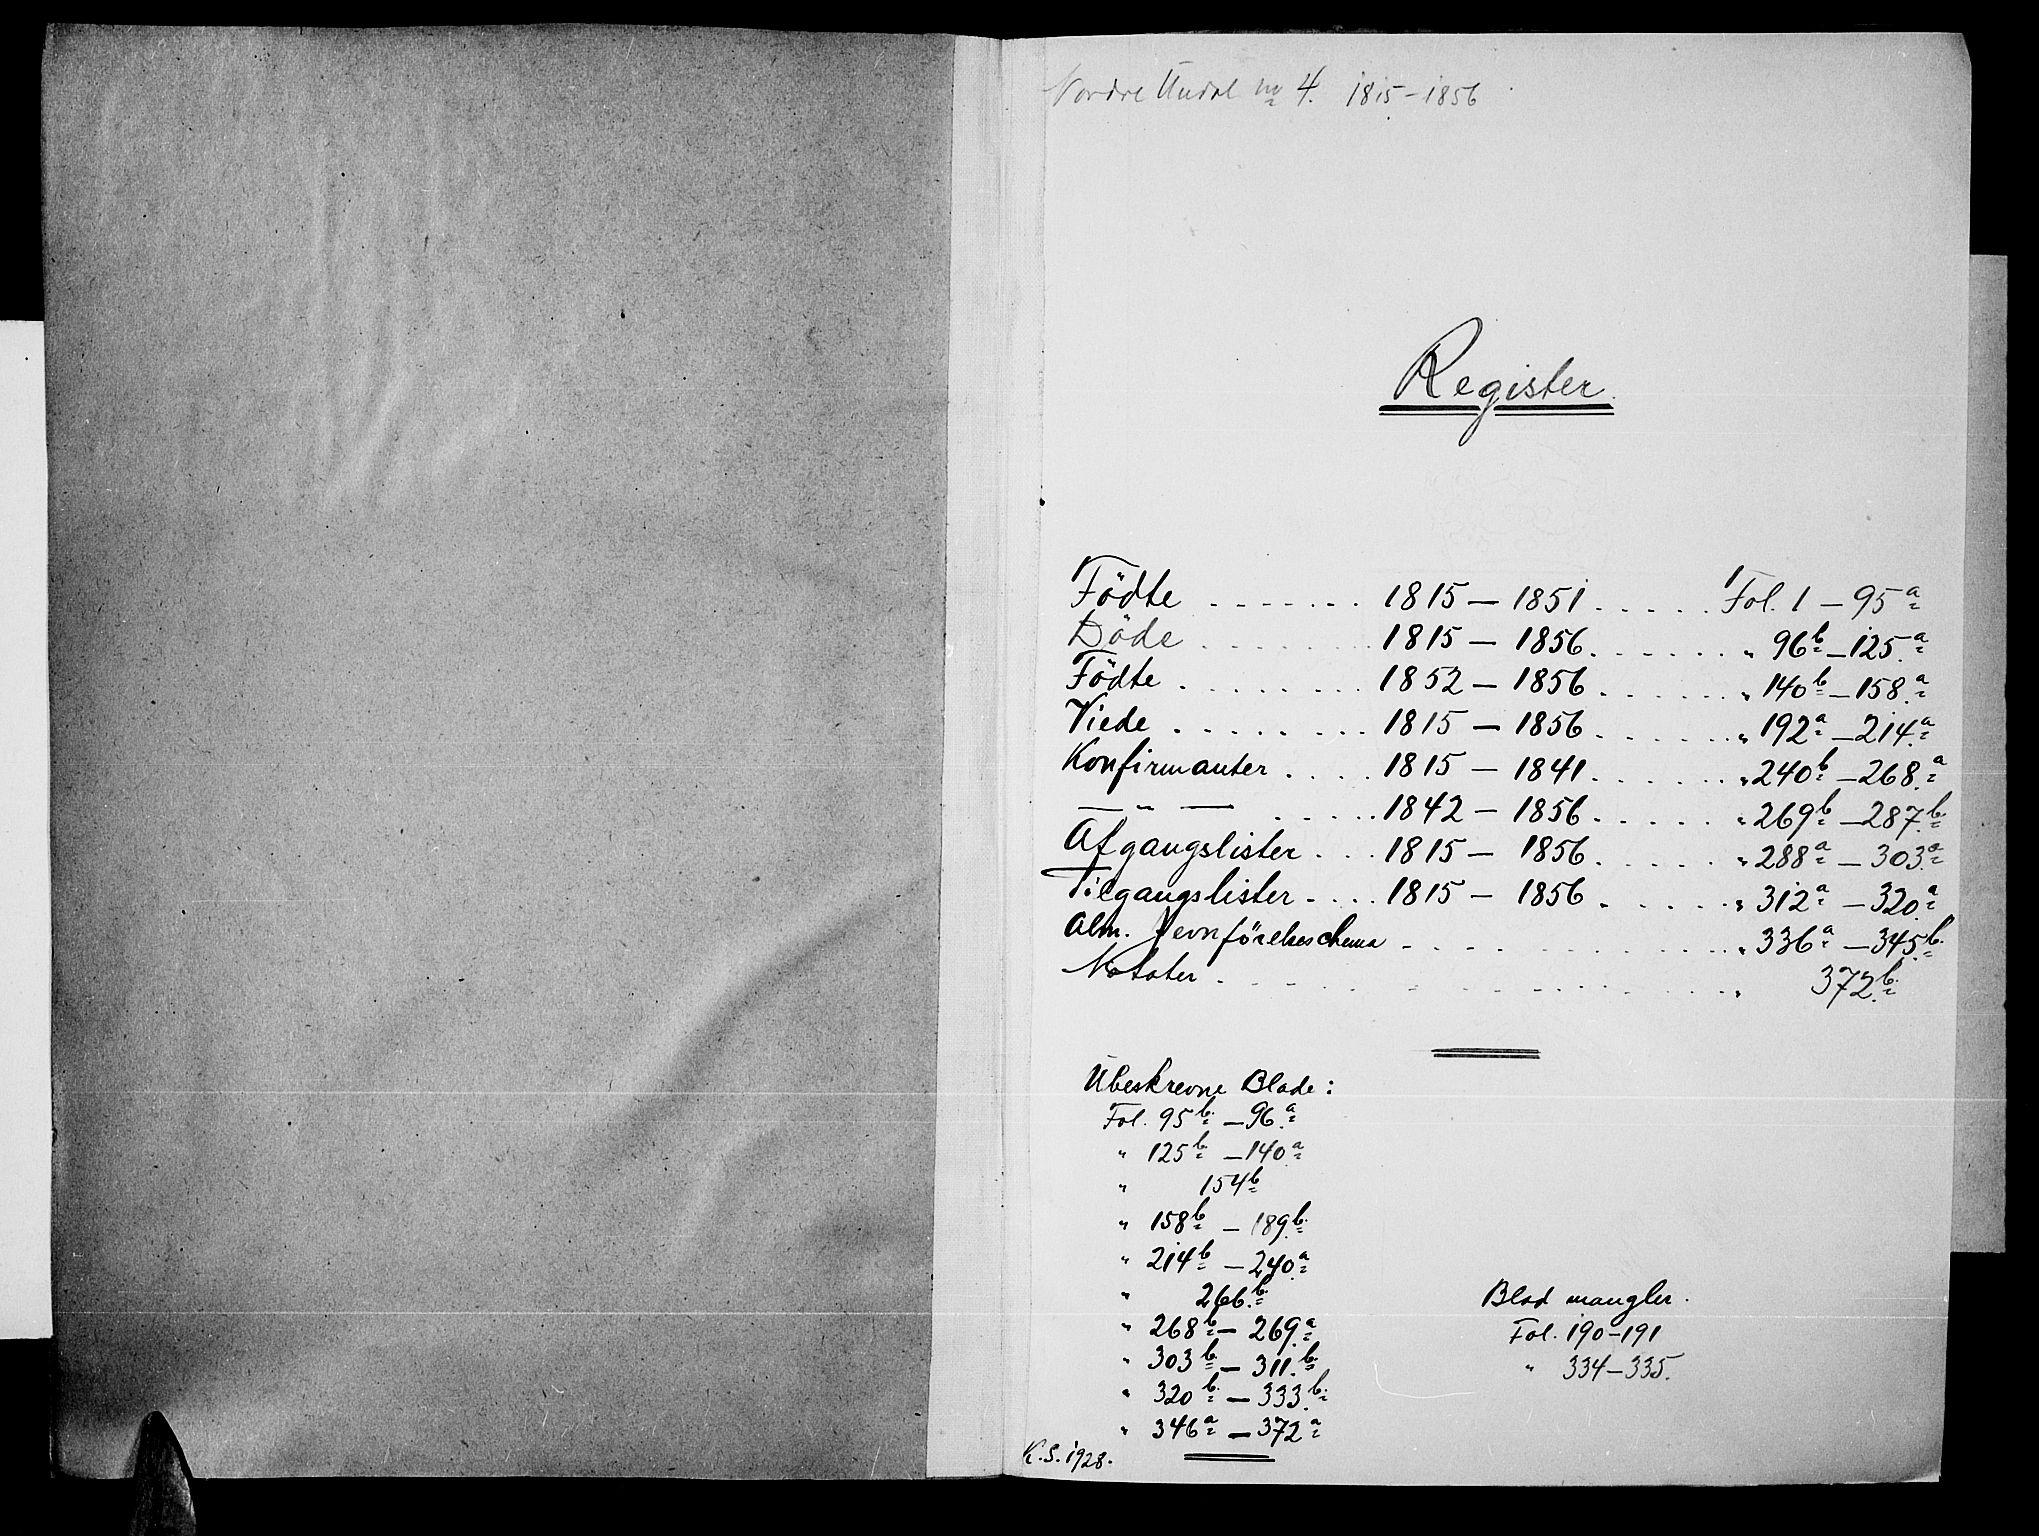 Nordre Undal no 4. 1815-1856
Register.
Födte ....... 1815 — 1851 ..... Fol. 1 — 95a
Döde ....... 1815 — 1856 ...... " 96b — 125a
Födte ....... 1852 — 1856 ...... " 140b — 158a
Viede ....... 1815 — 1856 ...... " 192a — 214a
Konfirmanter .... 1815 — 1841 ...... " 240b — 268a
— " — ..... 1842 — 1856 ...... " 269b — 287b
Afgangslister ... 1815 — 1856 ...... " 288a — 303a
Tilgangslister .... 1815 — 1856 ...... " 312a — 320a
Alm. Jevnförelsesschema ....... " 336a — 345b
Notater ............ " 372b
Ubeskrevne Blade:
Fol. 95b — 96a
" 125b — 140a
" 154b
" 158b — 189b
" 214b — 240a
" 266b
" 268b — 269a
" 303b — 311b
" 320b — 333b
" 346a — 372a
Blad mangler.
Fol. 190-191
" 334-335.
K.S. 1928.